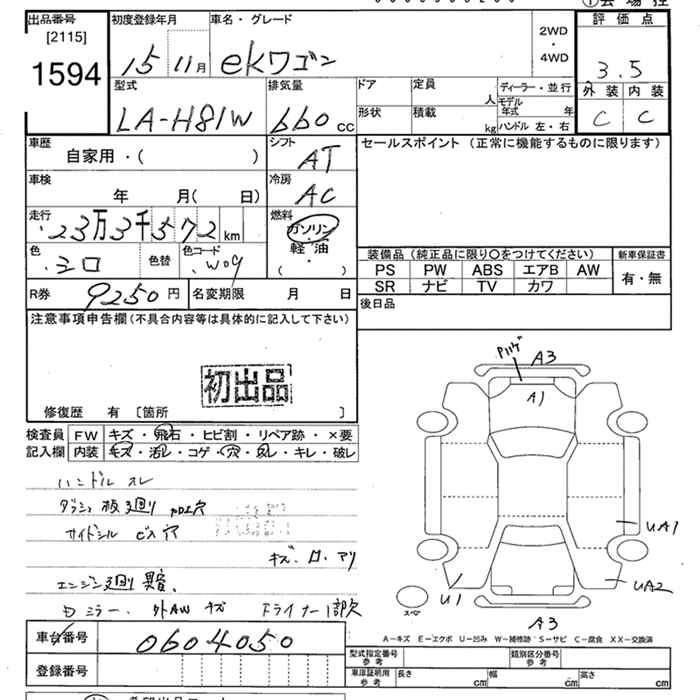 出品番号
[2115]
1594
初度登録年月
15 11月
車名・グレード
ekワゴン
2WD
・
4WD
評価点
3.5
外装 内装
C C
型式
LA-H81W
排気量
660 CC
ドア
形状
定員
人
積載
kg
ディーラー・並行
モデル年式 年
ハンドル 左・右
車歴
自家用・( )
シフト
AT
セールスポイント (正常に機能するものに限ります)
車検
年 月( 日)
冷房
AC
走行
23万3千572 km
燃料
ガソリン
軽・油
( )
色
シロ
色替
色コード
W09
装備品 (純正品に限り○をつけてください)
新車保証書
PS PW ABS エアB AW
SR ナビ TV カワ
有・無
R券
9250円
名変期限 月 日
後日品
注意事項申告欄(不具合内容等は具体的に記入して下さい)
初出品
修復歴 有 [箇所 ]
検査員
記入欄
FW キズ・飛石・ヒビ割・リペア跡・×要
内装 キズ・汚レ・コゲ・穴・スレ・キレ・破レ
ハンドル スレ
ダッシュ板廻り 加工穴
サイドシル ビス穴
キズ・ロ・アリ
エンジン廻り 異音、
Dミラー、外AW キズ
ドライナー1部欠
Pハゲ
A3
A1
UA1
U1
UA2
スペア
A3
A−キズ E−エクボ U−凹み W−補修跡 S−サビ C−腐食 XX−交換済
車台番号
0604050
登録番号
型式指定番号
参考
類別区分番号
参考
車庫証明用
参考
長さ cm
幅 cm
高さ cm